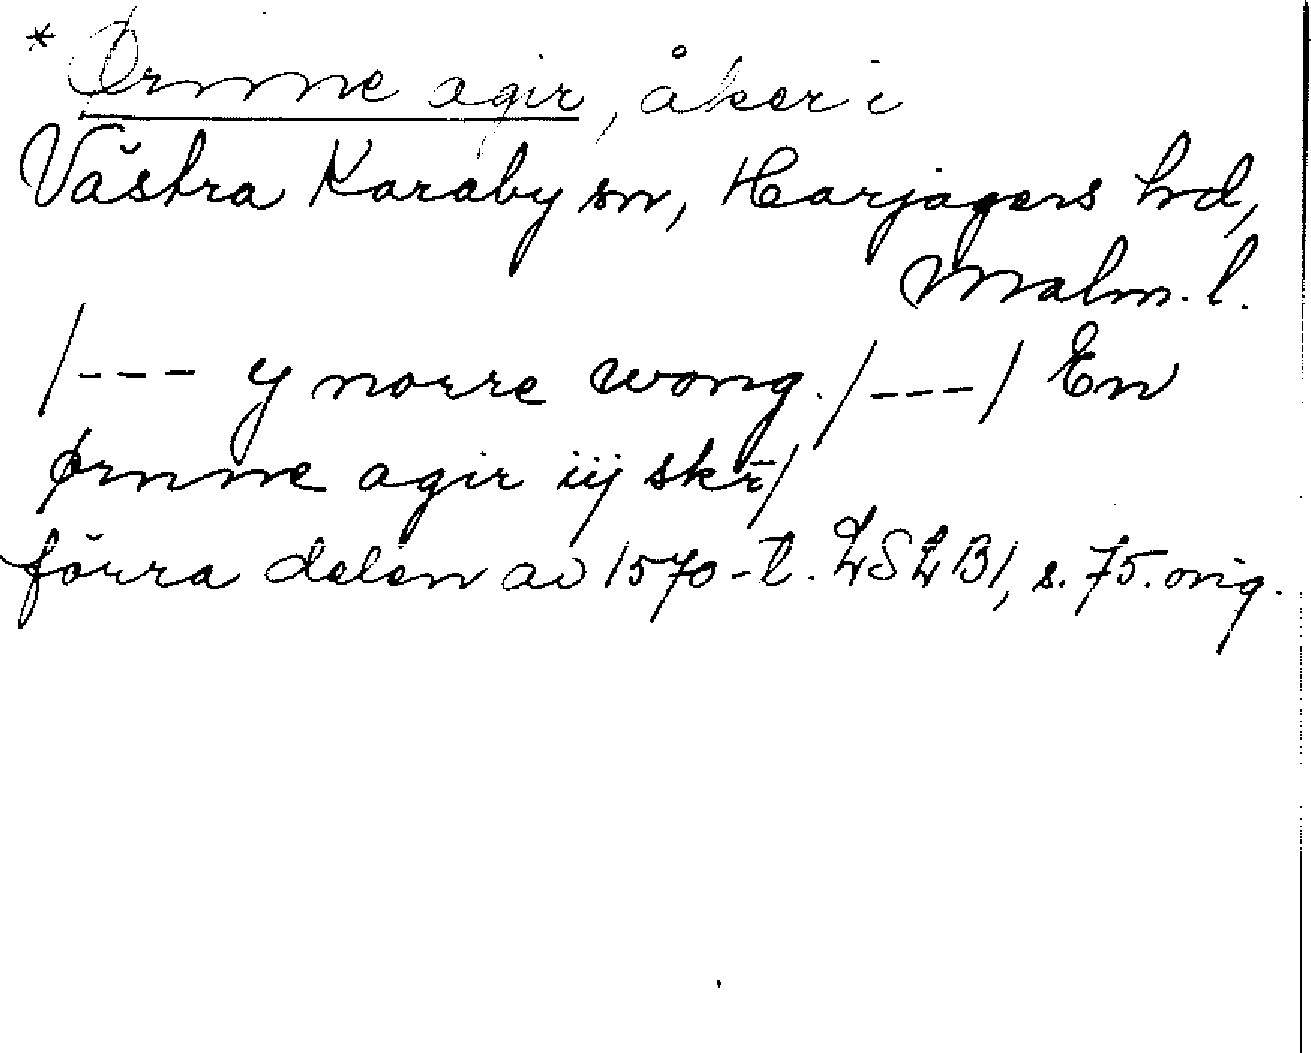 * Ørnne agir, åker i
Västra Karaby sn, Harjagers hd,
Malm. l.
/--- y norre wong. /---/ En
ørnne agir iij skr̄/
förra delen av 1570-t. LSLB1, s. 75. orig.